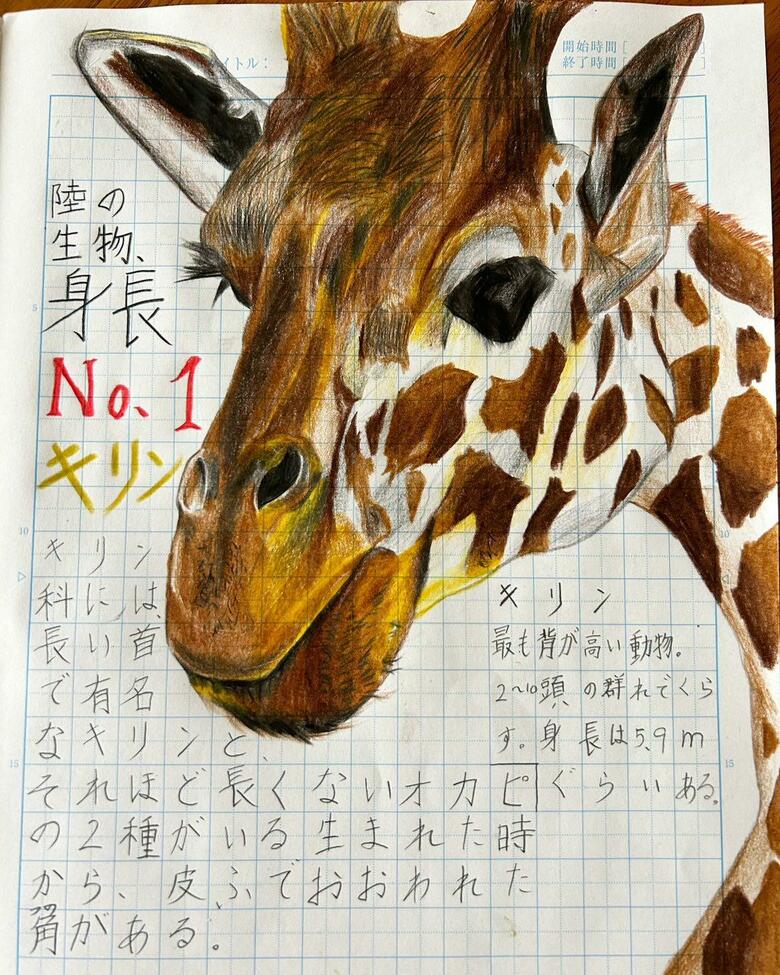 イトル：
開始時間 [
終了時間 [
陸の
生物、
身長
No.1
キリン
キリン
科には、
長い首
で有名
なキリンと、
それほど長くないオカピ
の2種がいる生まれた時
から、皮ふでおおわれた
角がある。
キリン
最も背が高い動物。
2〜10頭の群れでくら
す。身長は5.9m
ぐらいある。
5
10
15
5
10
15